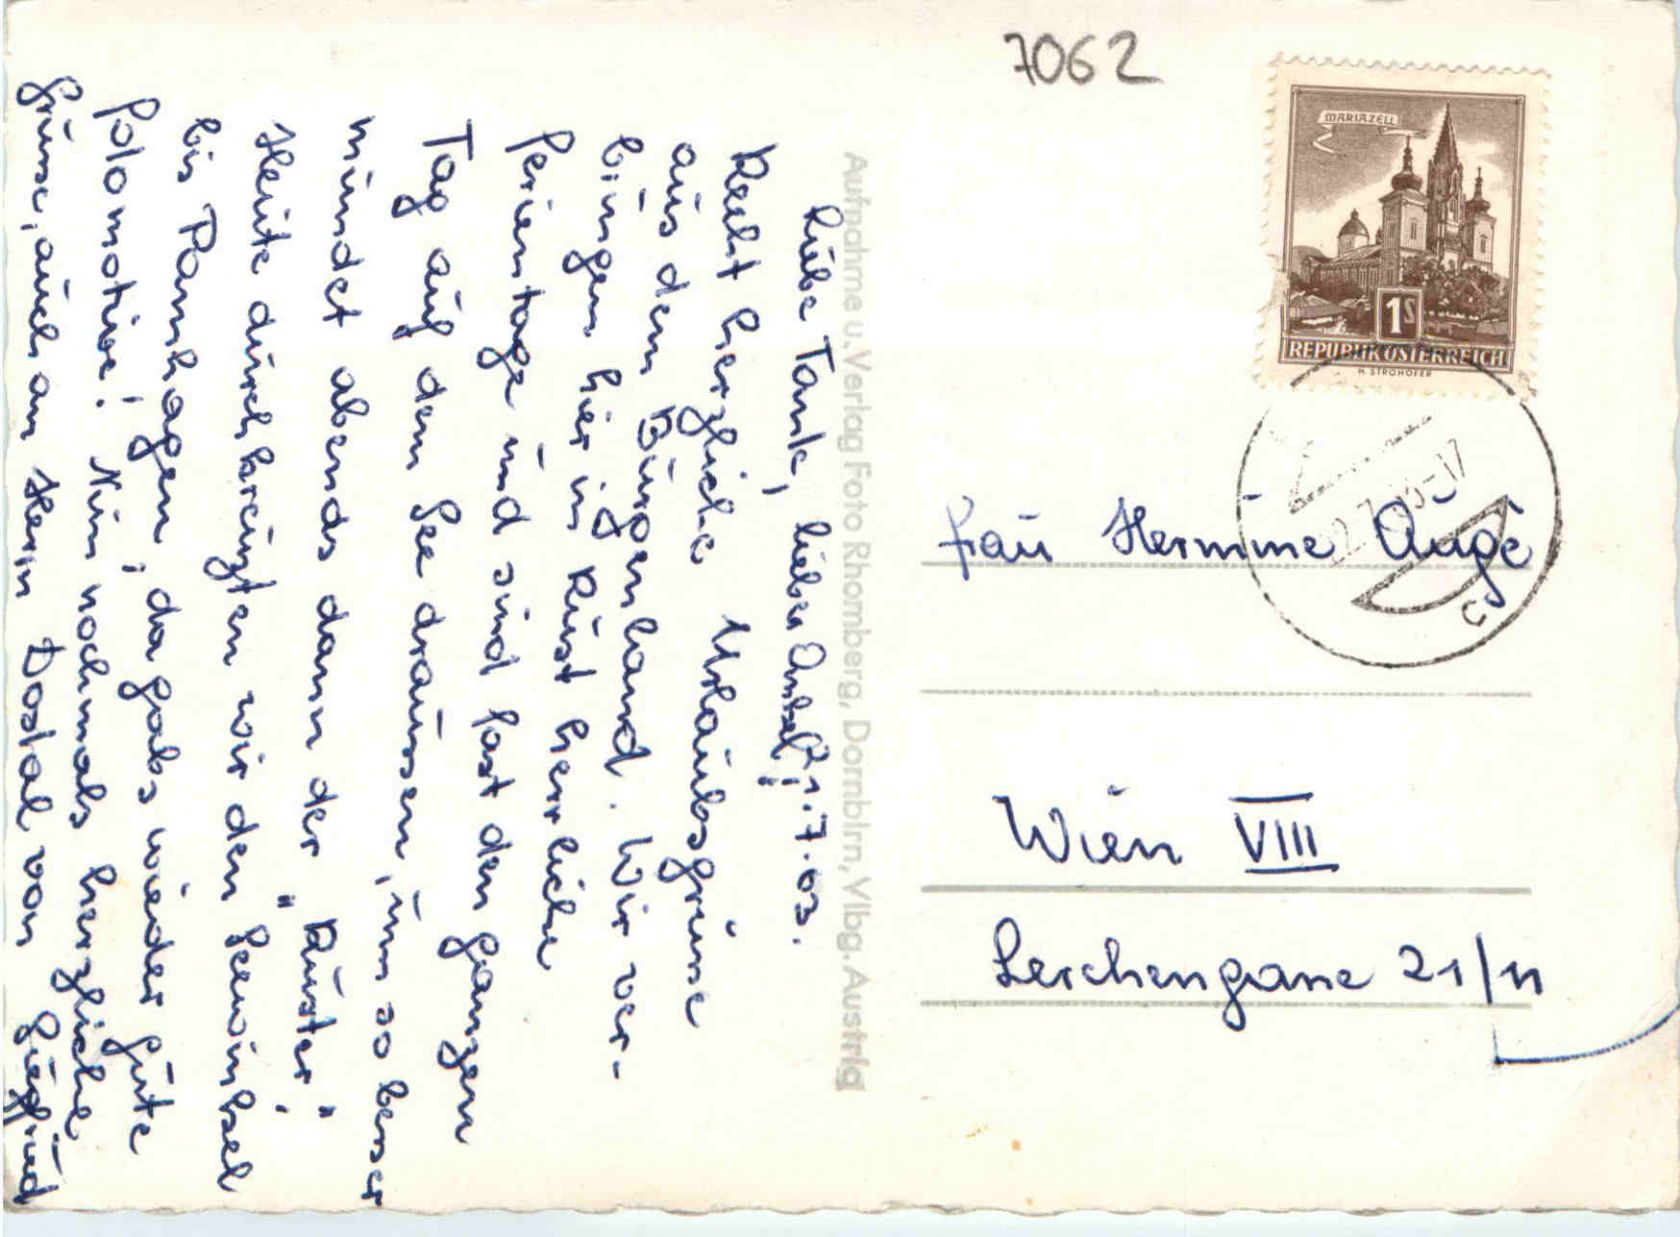 7062
MARIAZELL
1S
REPUBLIK ÖSTERREICH
H. STROHOFER
Frau Hermine Augé
Wien VIII
Lerchengasse 21/11
Aufnahme u. Verlag Foto Rhomberg, Dornbirn, Vlbg. Austria
Liebe Tante, lieber Onkel! 21.7.63.
Recht herzliche Urlaubsgrüsse
aus dem Burgenland. Wir ver-
bringen hier in Rust herrliche
Ferientage und sind fast den ganzen
Tag auf dem See draussen, um so besser
mündet abends dann der "Ruster".
Heute durchkreuzten wir den Seewinkel
bis Pamhagen, da gabs wieder gute
Fotomotive! Nun nochmals herzliche
Grüsse, auch an Herrn Dostal von Siegfried